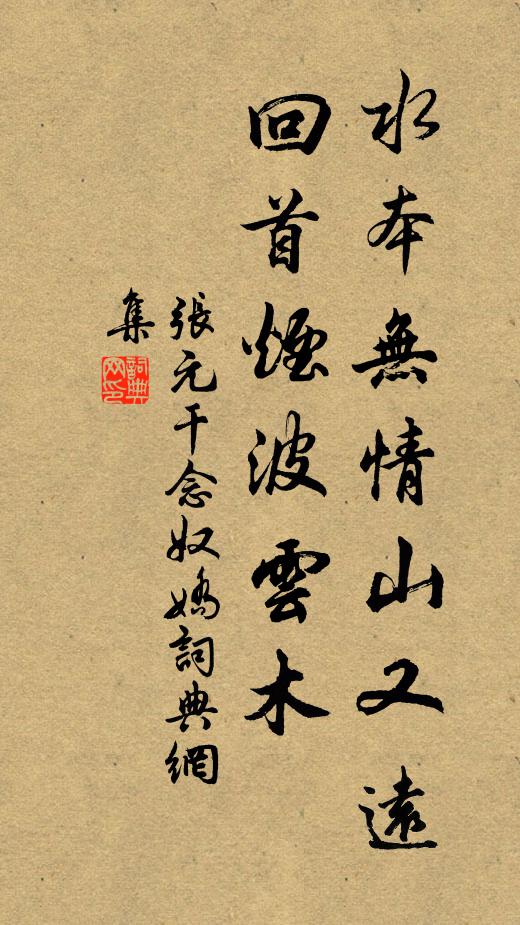 水本無情山又遠
回首煙波雲木
張元干念奴嬌詞典網
集
詞典
网印